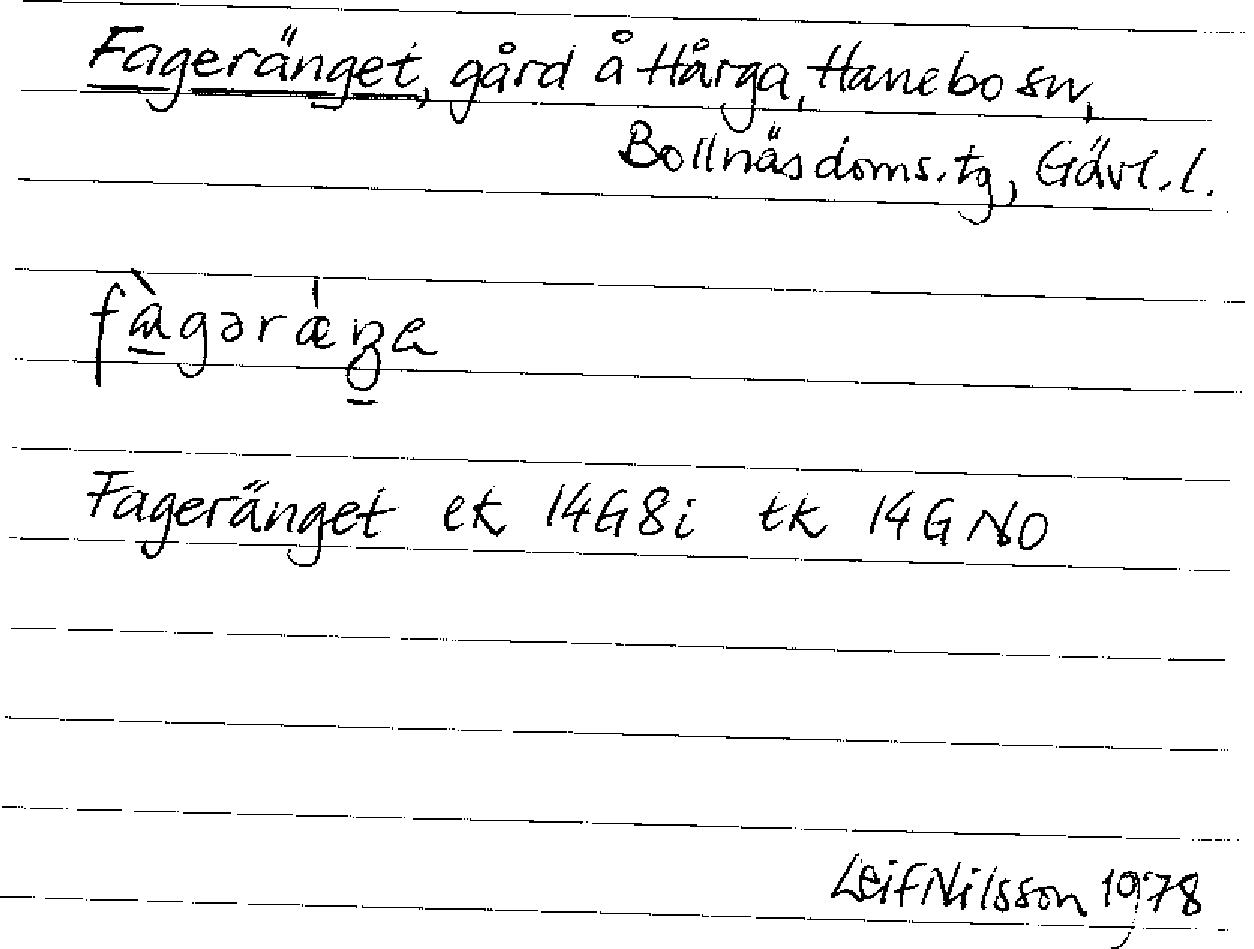 Fageränget, gård å Hårga, Hanebo sn,
Bollnäs doms.tg, Gävl.l.
Fageränget ek 14G8i tk 14G NO
Leif Nilsson 1978